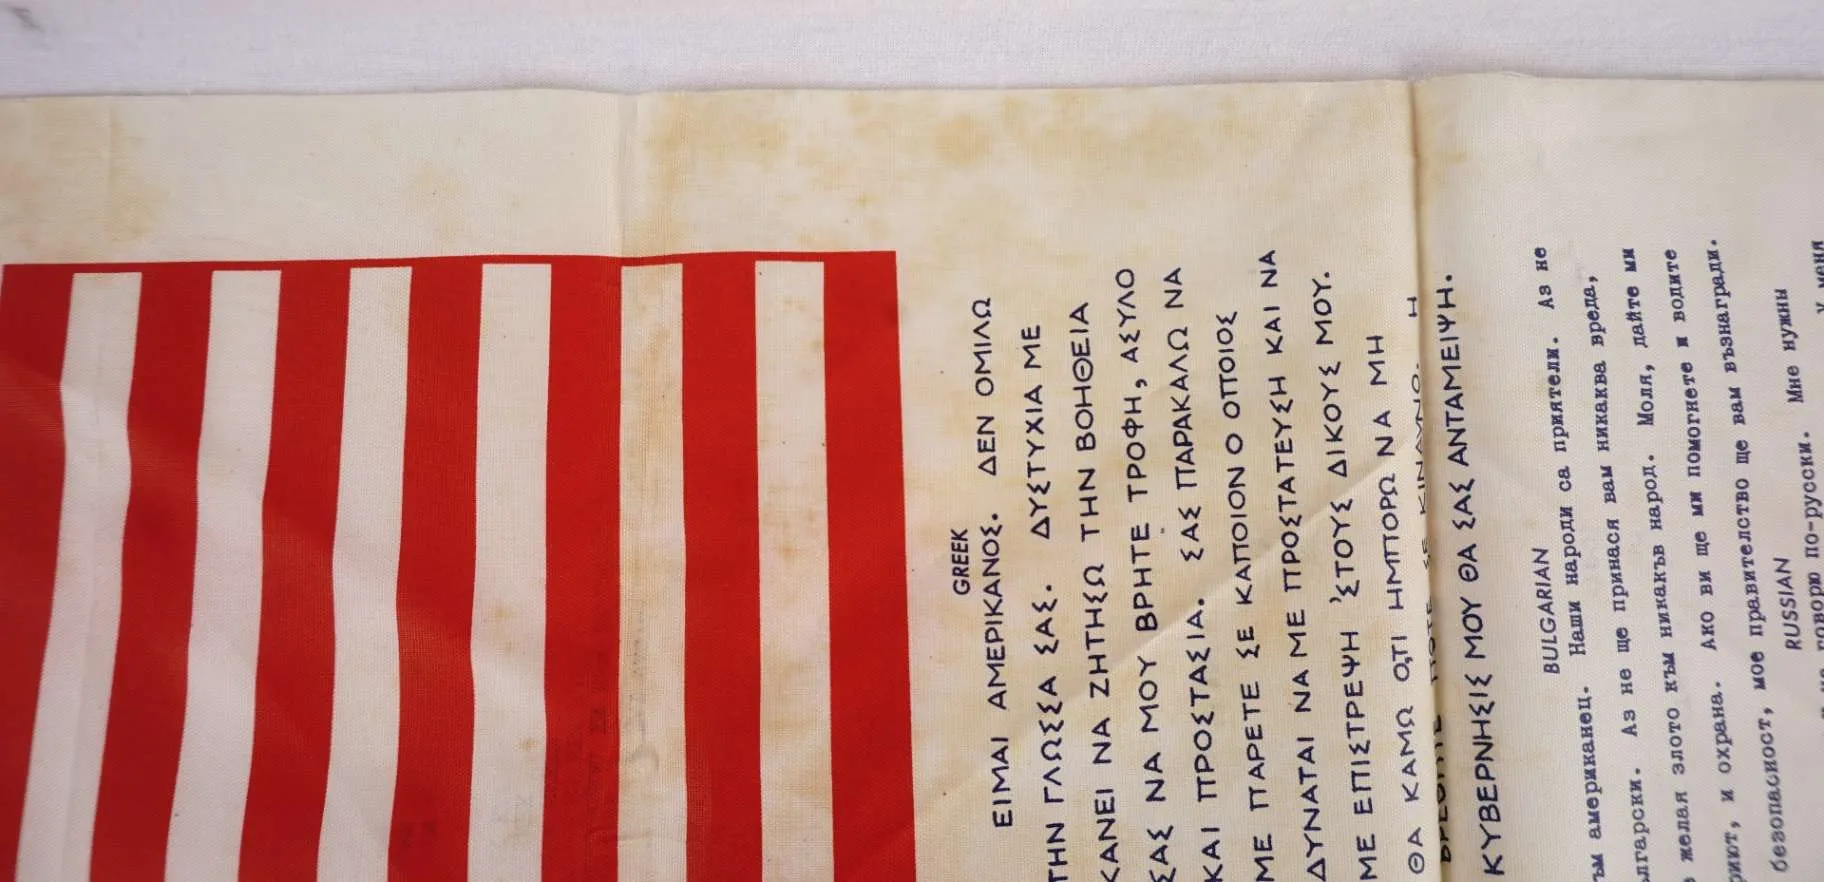 GREEK
ΕΙΜΑΙ ΑΜΕΡΙΚΑΝΟΣ. ΔΕΝ ΟΜΙΛΩ
ΤΗΝ ΓΛΩΣΣΑ ΣΑΣ. ΔΥΣΤΥΧΙΑ ΜΕ
ΚΑΝΕΙ ΝΑ ΖΗΤΗΣΩ ΤΗΝ ΒΟΗΘΕΙΑ
ΣΑΣ ΝΑ ΜΟΥ ΒΡΗΤΕ ΤΡΟΦΗ, ΑΣΥΛΟ
ΚΑΙ ΠΡΟΣΤΑΣΙΑ. ΣΑΣ ΠΑΡΑΚΑΛΩ ΝΑ
ΜΕ ΠΑΡΕΤΕ ΣΕ ΚΑΠΟΙΟΝ Ο ΟΠΟΙΟΣ
ΔΥΝΑΤΑΙ ΝΑ ΜΕ ΠΡΟΣΤΑΤΕΥΣΗ ΚΑΙ ΝΑ
ΜΕ ΕΠΙΣΤΡΕΨΗ ΄ΣΤΟΥΣ ΔΙΚΟΥΣ ΜΟΥ.
ΘΑ ΚΑΜΩ Ο,ΤΙ ΗΜΠΟΡΩ ΝΑ ΜΗ
ΣΕ ΚΙΝΔΥΝΟ. Η
ΚΥΒΕΡΝΗΣΙΣ ΜΟΥ ΘΑ ΣΑΣ ΑΝΤΑΜΕΙΨΗ.
BULGARIAN
американец. Наши народи са приятели. Аз не
Аз не ще принася вам никаква вреда,
желая злото към никакъв народ. Моля, дайте ми
и охрана. Ако ви ще ми помогнете и водите
безопасност, мое правителство ще вам възнагради.
RUSSIAN
говорю по-русски. Мне нужны